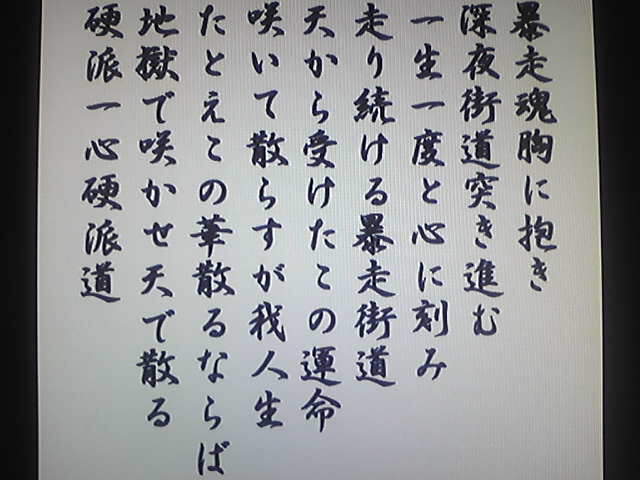 暴走魂胸に抱き
深夜街道突き進む
一生一度と心に刻み
走り続ける暴走街道
天から受けたこの運命
咲いて散らすが我人生
たとえこの華散るならば
地獄で咲かせ天で散る
硬派一心硬派道